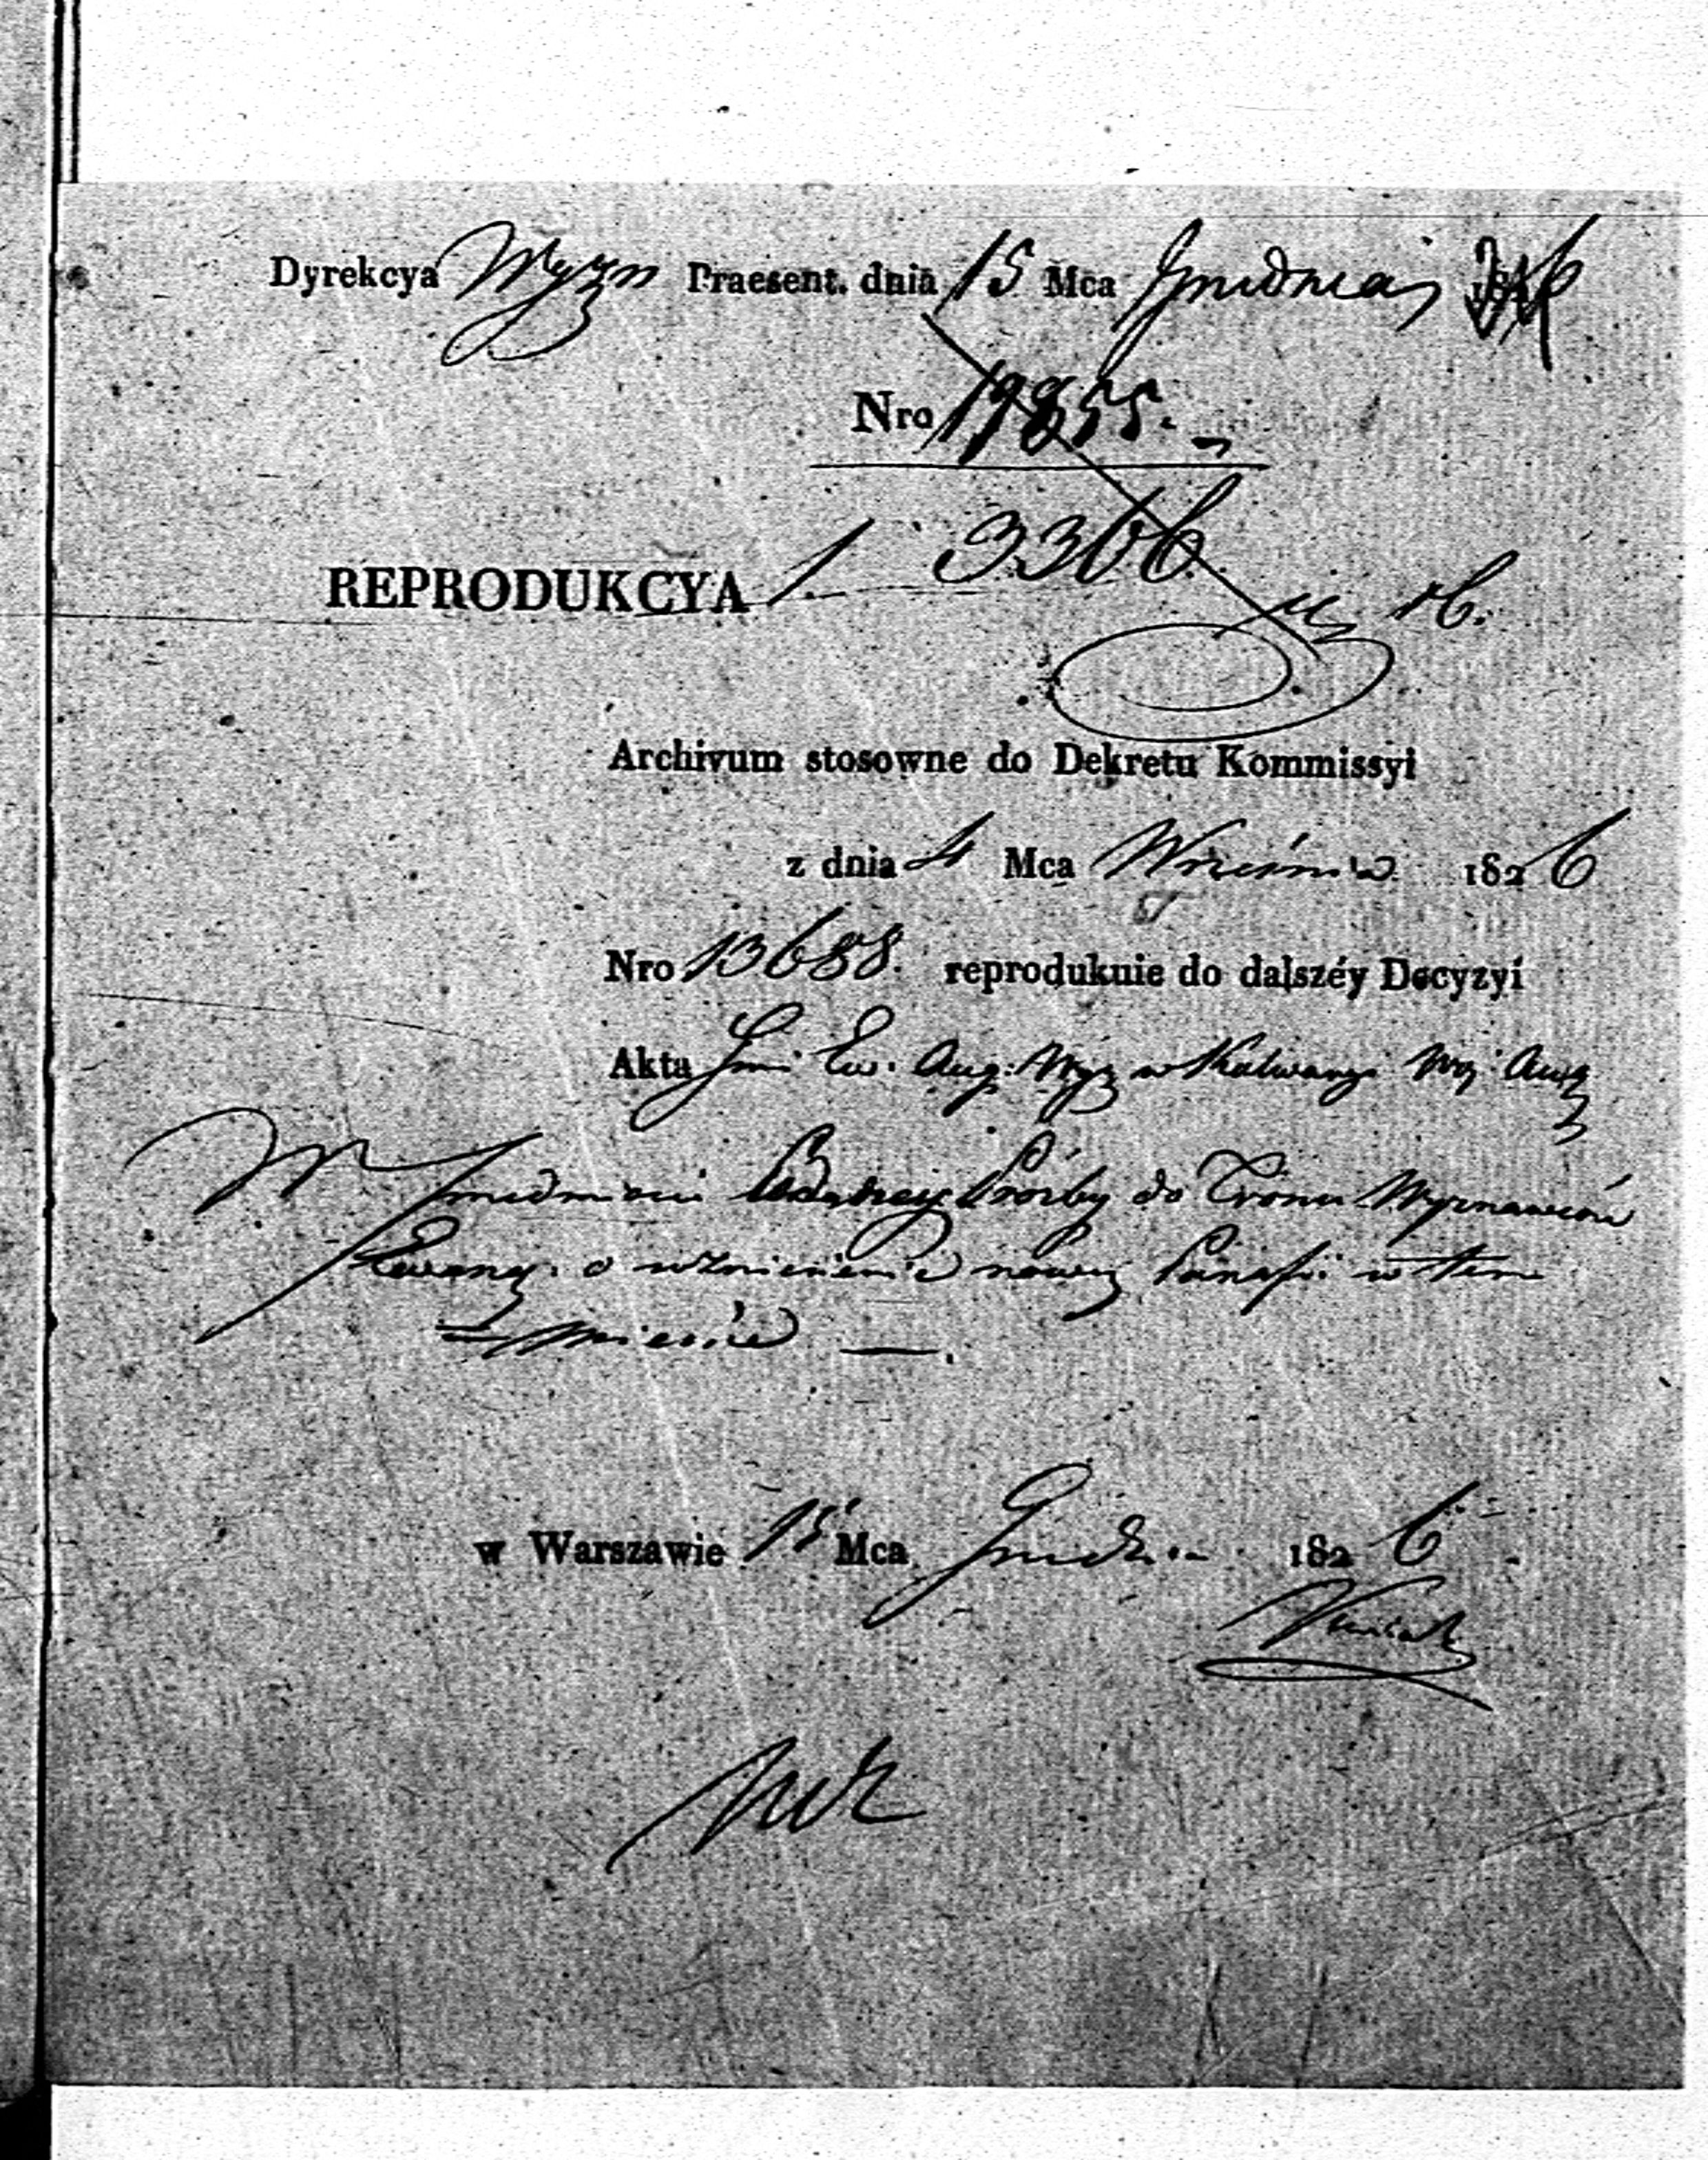 Dyrekcya Wyzn Praesent. dnia 15 Mca Grudnia 1826
Nro 19855.
3306
REPRODUKCYA 1.
Archivum stosowne do Dekretu Kommissyi
z dnia 4 Mca Września 1826
Nro 13688. reprodukuie do dalszéy Decyzyi
Akta Gmi Ew. Aug: Wyz w Kalwaryi Woj Aug
W Prośby do Tronu Wyznawców
Ewang. o wzniesienie nowey Parafii w tem
mieście —.
w Warszawie 15 Mca Grudnia 1826